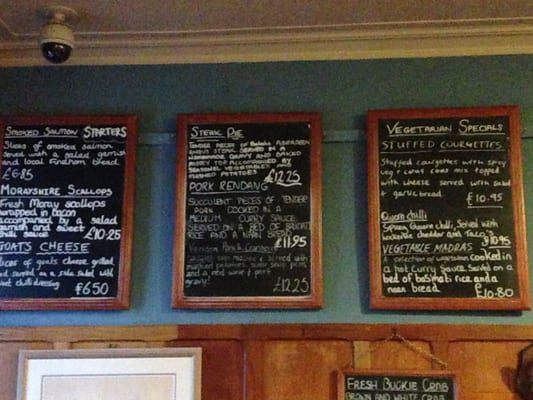 Smoked Salmon STARTERS
Slices of smoked salmon
served with a salad garnish
and local Findhorn bread.
£6.85
MORAYSHIRE SCALLOPS
Fresh Moray scallops
wrapped in bacon
accompanied by a salad
garnish and sweet
chilli sauce £10.25
GOATS CHEESE
Slices of goats cheese grilled
and served on a side salad with
sweet chilli dressing
£6.50
STEAK PIE
TENDER PIECES OF ABERDEEN
ANGUS STEAK SERVED IN A
HOMEMADE GRAVY AND BAKED
PASTRY TOP ACCOMPANIED BY
SEASONAL VEGETABLES AND
MASHED POTATOES £12.25
PORK RENDANG
SUCCULENT PIECES OF TENDER
PORK COOKED IN A
MEDIUM CURRY SAUCE
SERVED ON A BED OF BASMATI
RICE AND A NAAN BREAD
£11.95
Venison
served with
mashed potatoes, sugar snap peas,
and a red wine & port
gravy! £12.25
VEGETARIAN SPECIALS
STUFFED COURGETTES
Stuffed courgettes with spicy
veg & cous cous mix topped
with cheese served with salad &
garlic bread. £10.95
Quorn chilli
Spicey Quorn chilli, Served with
cheddar and
£10.95
VEGETABLE MADRAS
A selection of vegetables cooked in
a hot curry sauce. Served on a
bed of basmati rice and a
naan bread £10.80
FRESH BUCKIE CRAB
BROWN AND WHITE CRAB